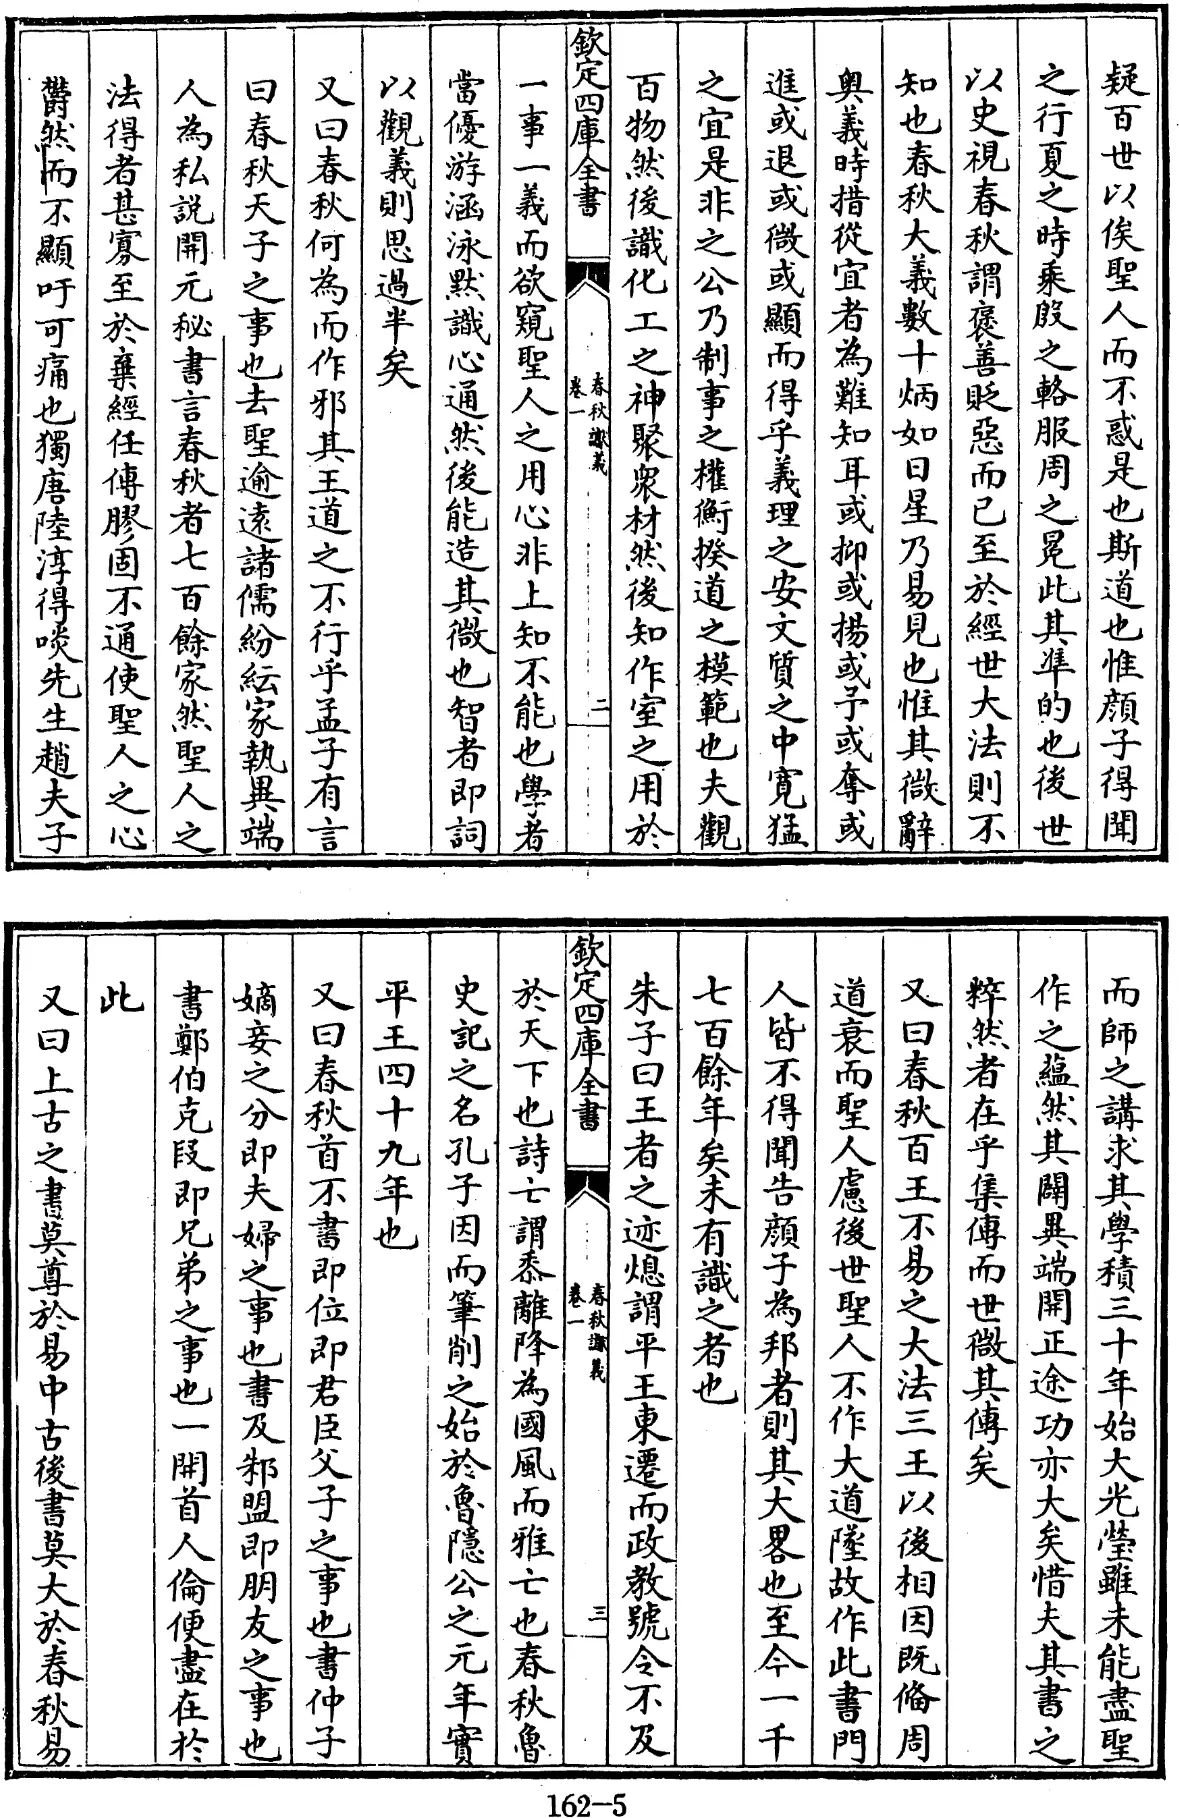 疑百世以俟聖人而不惑是也斯道也惟顔子得聞
之行夏之時乘殷之輅服周之冕此其準的也後世
以史視春秋謂褒善貶惡而已至於經世大法則不
知也春秋大義數十炳如日星乃易見也惟其微辭
奥義時措從宜者為難知耳或抑或揚或予或奪或
進或退或微或顯而得乎義理之安文質之中寛猛
之宜是非之公乃制事之權衡揆道之模範也夫觀
百物然後識化工之神聚衆材然後知作室之用於
欽定四庫全書
春秋讞義
卷一
二
一事一義而欲窺聖人之用心非上知不能也學者
當優游涵泳默識心通然後能造其微也智者即詞
以觀義則思過半矣
又曰春秋何為而作邪其王道之不行乎孟子有言
曰春秋天子之事也去聖逾逺諸儒紛紜家執異端
人為私説開元秘書言春秋者七百餘家然聖人之
法得者甚寡至於棄經任傳膠固不通使聖人之心
欝然而不顯吁可痛也獨唐陸淳得啖先生趙夫子
而師之講求其學積三十年始大光瑩雖未能盡聖
作之蘊然其闢異端開正途功亦大矣惜夫其書之
粹然者在乎集傳而世微其傳矣
又曰春秋百王不易之大法三王以後相因既偹周
道衰而聖人慮後世聖人不作大道墜故作此書門
人皆不得聞告顔子為邦者則其大畧也至今一千
七百餘年矣未有識之者也
朱子曰王者之迹熄謂平王東遷而政教號令不及
欽定四庫全書
春秋讞義
卷一
三
於天下也詩亡謂黍離降為國風而雅亡也春秋魯
史記之名孔子因而筆削之始於魯隱公之元年實
平王四十九年也
又曰春秋首不書即位即君臣父子之事也書仲子
嫡妾之分即夫婦之事也書及邾盟即朋友之事也
書鄭伯克段即兄弟之事也一開首人倫便盡在於
此
又曰上古之書莫尊於易中古後書莫大於春秋易
162-5